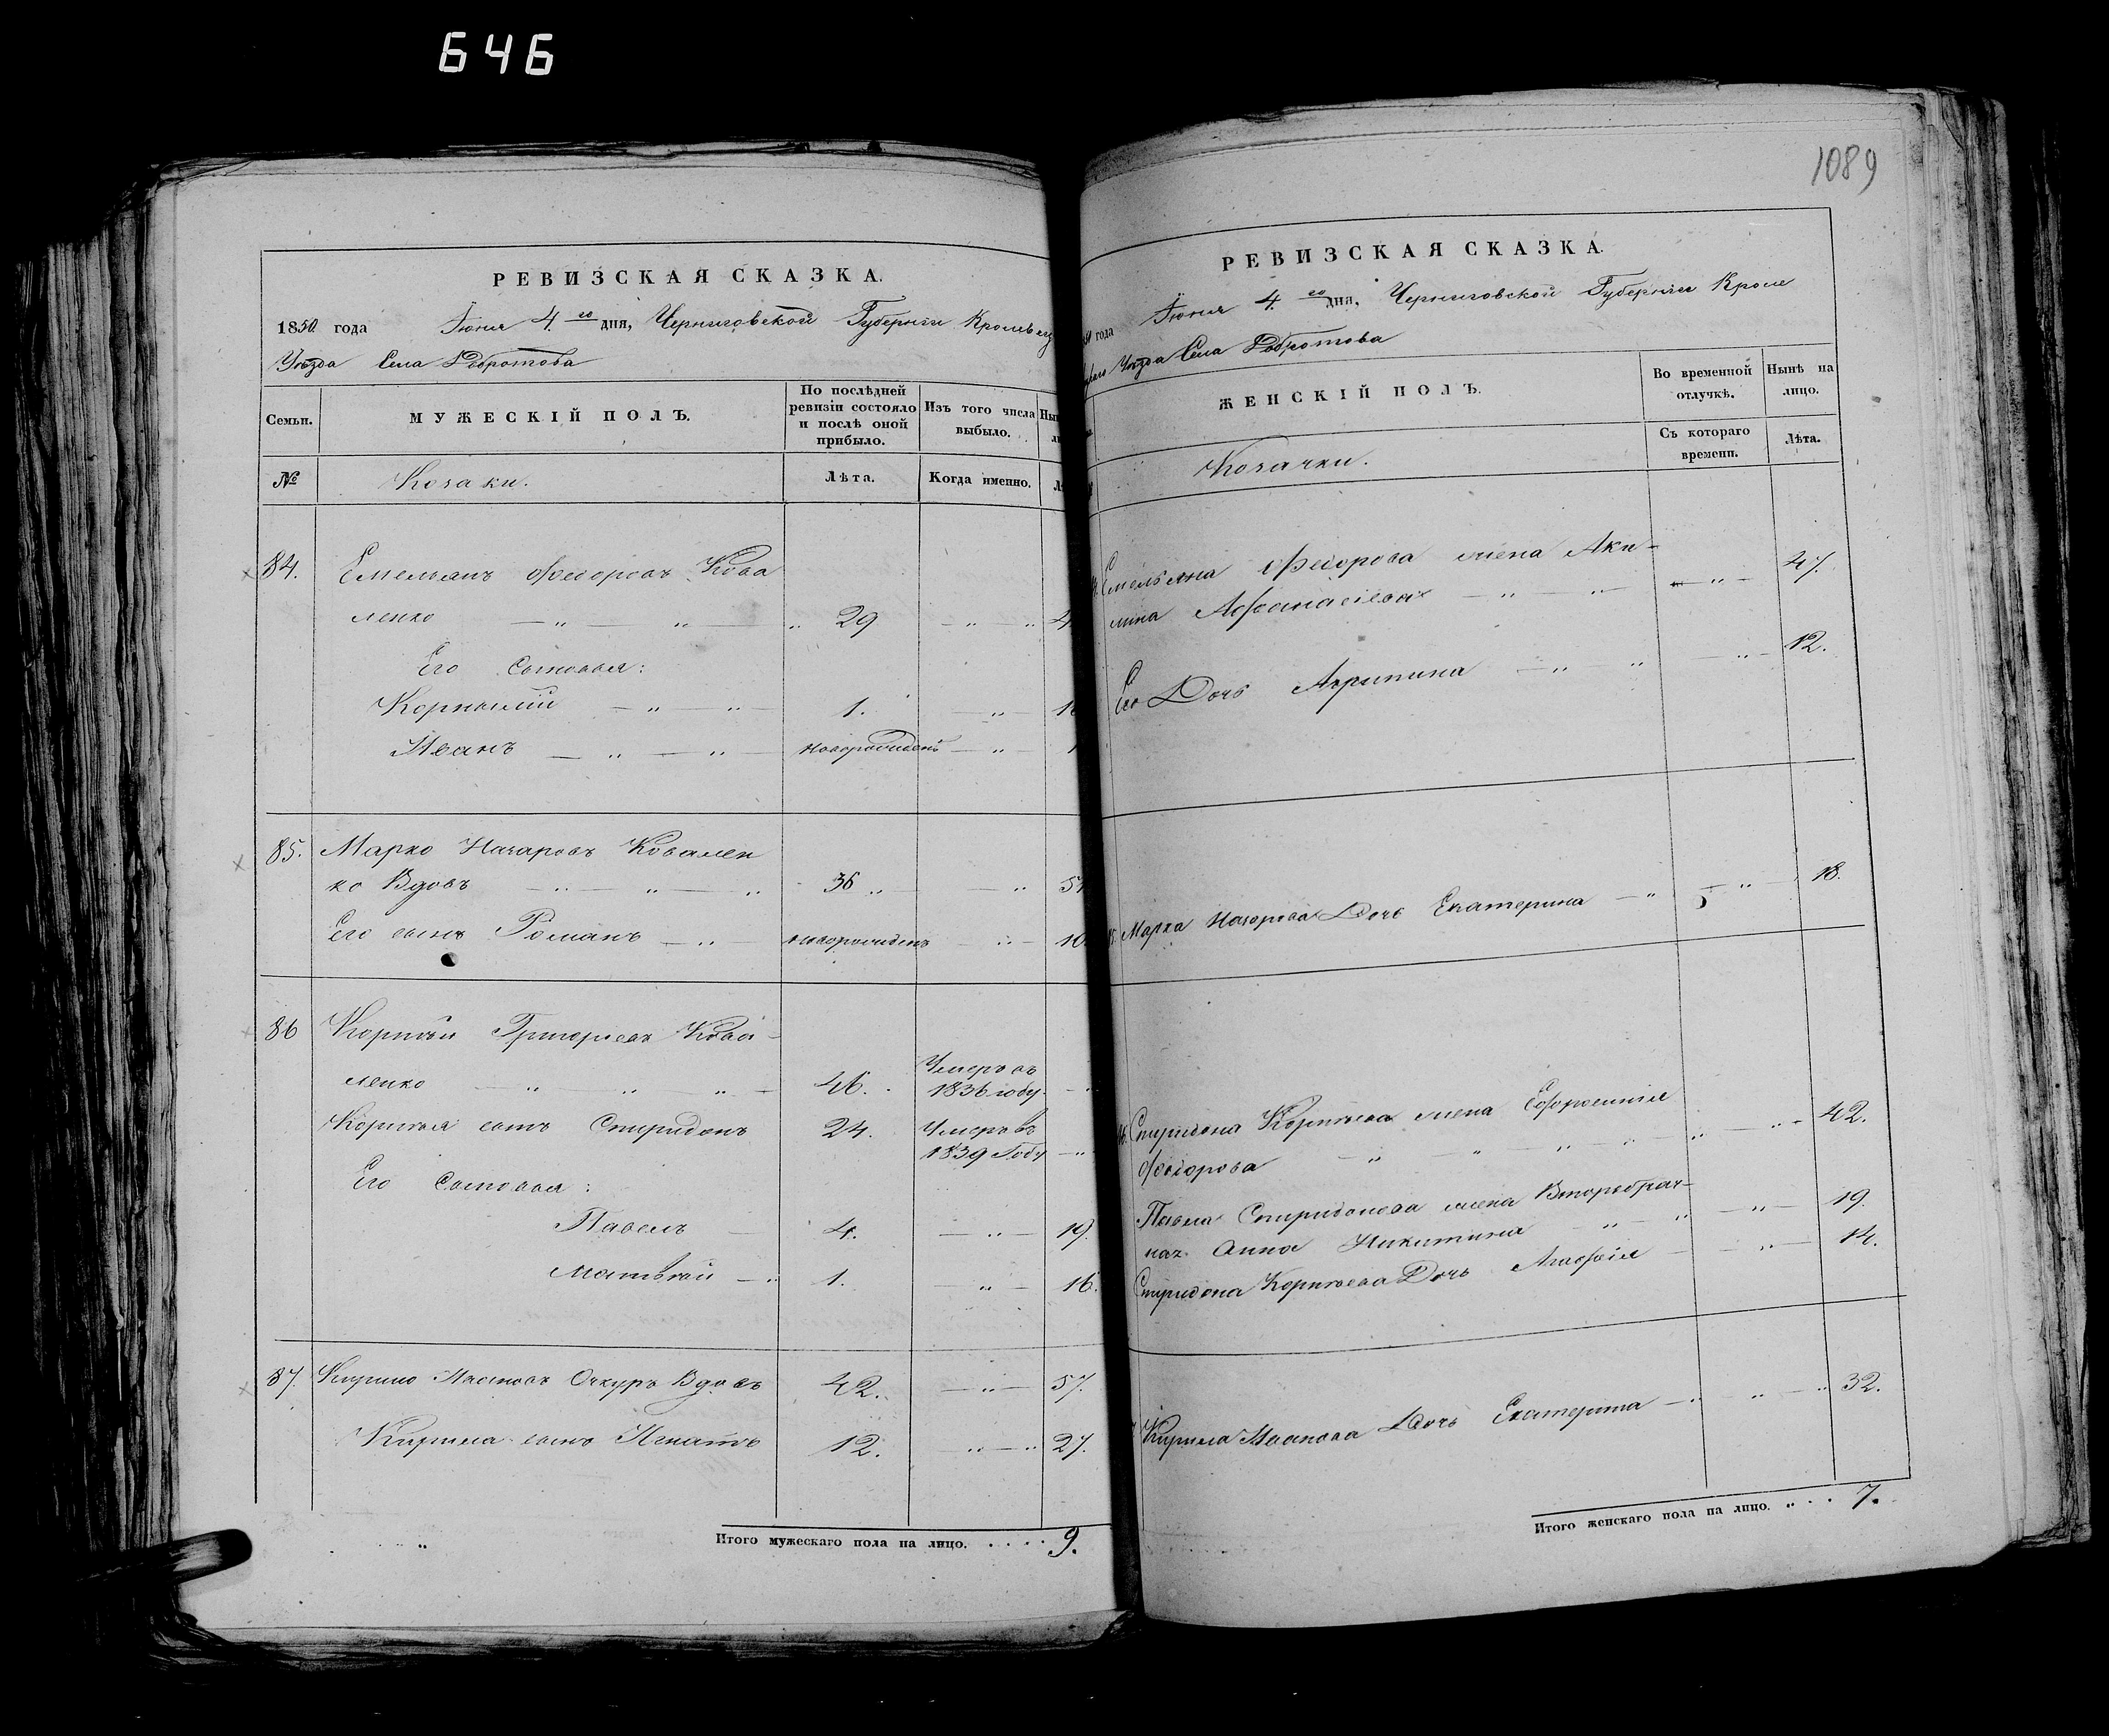 646
РЕВИЗСКАЯ СКАЗКА.
1850 года Іюня 4 го дня, Черниговской Губерніи Кролевец
Уѣзда Села Добротова
Семьи.
МУЖЕСКІЙ ПОЛЪ.
По послѣдней ревизіи состояло и послѣ оной прибыло.
Изъ того числа выбыло.
№
Козаки.
Лѣта.
Когда именно.
84. Емельянъ Федоровъ Кова
ленко 29
Его сыновья:
Корнилій 1.
Иванъ новорожденъ
85. Марко Назаровъ Ковален
ко Вдовъ 36
Его сынъ Романъ новорожденъ 10
86 Корнѣй Григорьевъ Кова-
ленко 46. Умеръ въ 1836 году
Корнѣя сынъ Спиридонъ 24. Умеръ въ 1839 Году
Его Сыновья:
Павелъ 4. 19.
Матвѣй 1. 16.
87. Кирило Ивановъ Очкуръ Вдовъ 42. 57.
Кирила сынъ Игнатъ 12. 27.
Итого мужескаго пола на лицо. 9.
1089
РЕВИЗСКАЯ СКАЗКА.
года Іюня 4 го дня, Черниговской Губерніи Кроле
Уѣзда Села Добротова
ЖЕНСКІЙ ПОЛЪ.
Во временной отлучкѣ.
Нынѣ на лицо.
Козачки.
Съ котораго времени.
Лѣта.
Емельяна Федорова жена Аки-
лина Афанасіева 47.
Его Дочь Агрипина 12.
Марка Назарова Дочь Екатерина 18.
Спиридона Корнѣева жена Евфросинія
Федорова 42.
Павла Спиридонова жена Второбрач-
ная Анна Никитина 19.
Спиридона Корнѣева Дочь Агафія 14.
Кирила Иванова Дочь Екатерина 32.
Итого женскаго пола на лицо. 7.